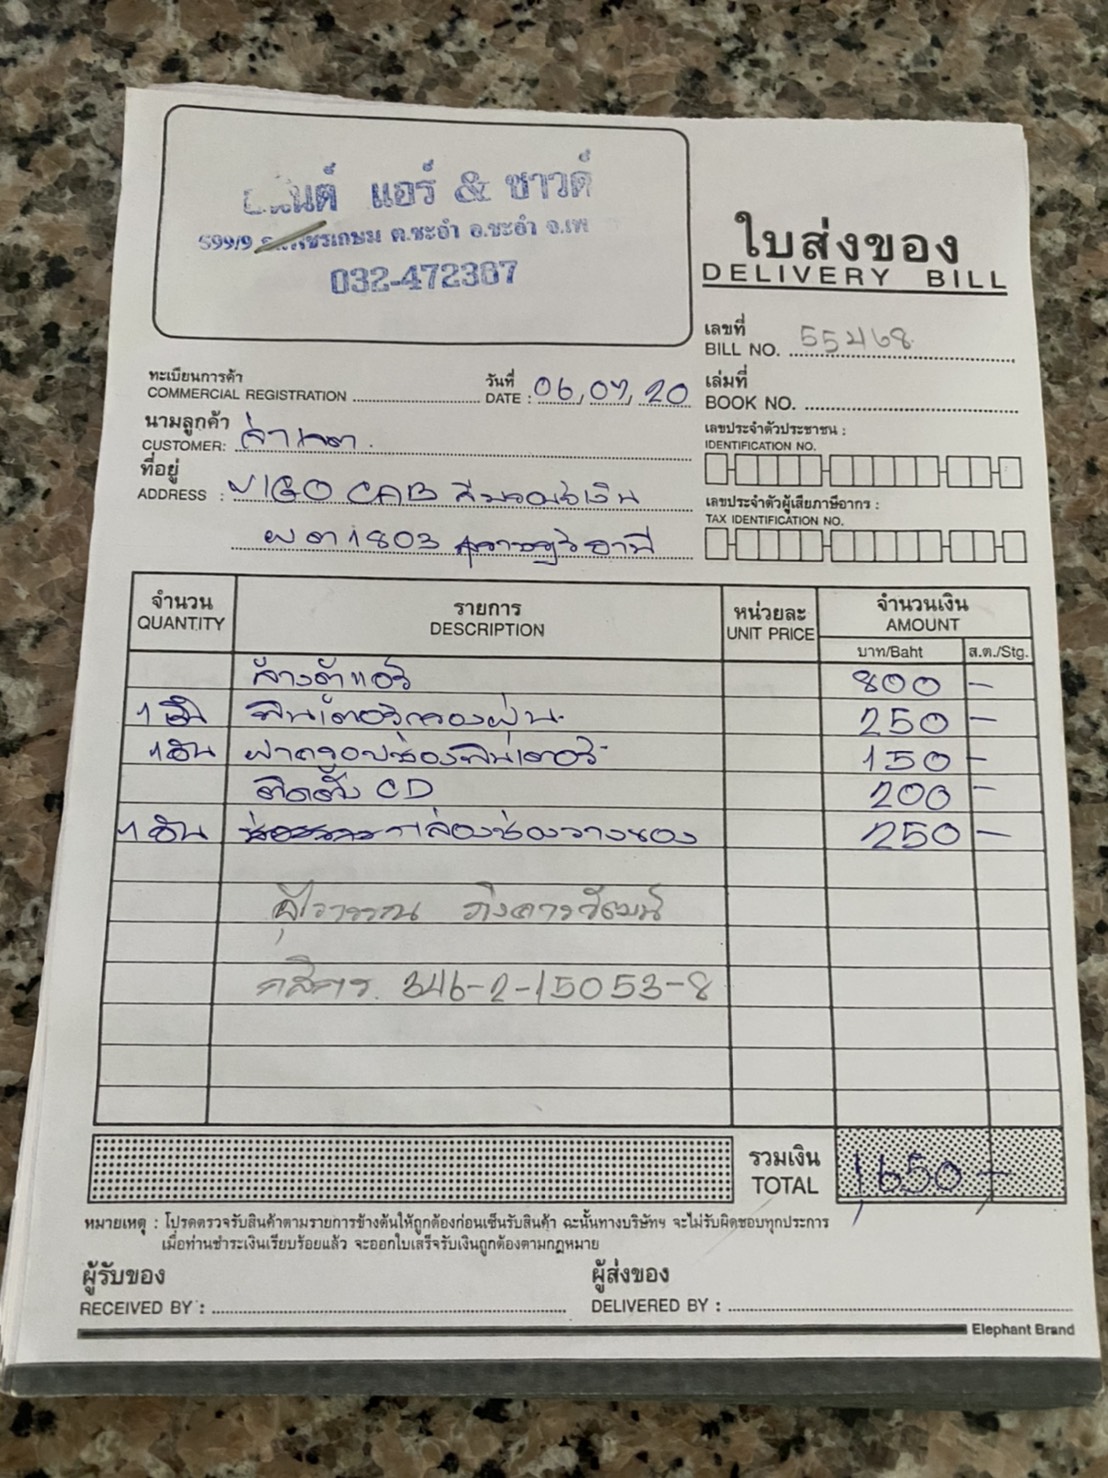 แอร์ & ซาวด์
599/9 ต.ชะอำ อ.ชะอำ จ.เพ
032-472387
ใบส่งของ
DELIVERY BILL
เลขที่
BILL NO. 55468
ทะเบียนการค้า
COMMERCIAL REGISTRATION
วันที่
DATE : 06,07,20
เล่มที่
BOOK NO.
นามลูกค้า
CUSTOMER:
เลขประจำตัวประชาชน :
IDENTIFICATION NO.
ที่อยู่
ADDRESS : VIGO CAB สีบรอนซ์เงิน
ผต 1803 สุราษฎร์ธานี
เลขประจำตัวผู้เสียภาษีอากร :
TAX IDENTIFICATION NO.
จำนวน รายการ หน่วยละ จำนวนเงิน
QUANTITY DESCRIPTION UNIT PRICE AMOUNT
บาท/Baht ส.ต./Stg.
ล้างตู้แอร์ 800 -
1 อัน ฟิลเตอร์กรองฝุ่น 250 -
1 อัน ฝาครอบช่องฟิลเตอร์ 150 -
ติดตั้ง CD 200 -
1 อัน กล่องช่องวางของ 250 -
กสิกร. 346-2-15053-8
รวมเงิน
TOTAL 1,650 -
หมายเหตุ : โปรดตรวจรับสินค้าตามรายการข้างต้นให้ถูกต้องก่อนเซ็นรับสินค้า ฉะนั้นทางบริษัทฯ จะไม่รับผิดชอบทุกประการ
เมื่อท่านชำระเงินเรียบร้อยแล้ว จะออกใบเสร็จรับเงินถูกต้องตามกฎหมาย
ผู้รับของ
RECEIVED BY :
ผู้ส่งของ
DELIVERED BY :
Elephant Brand